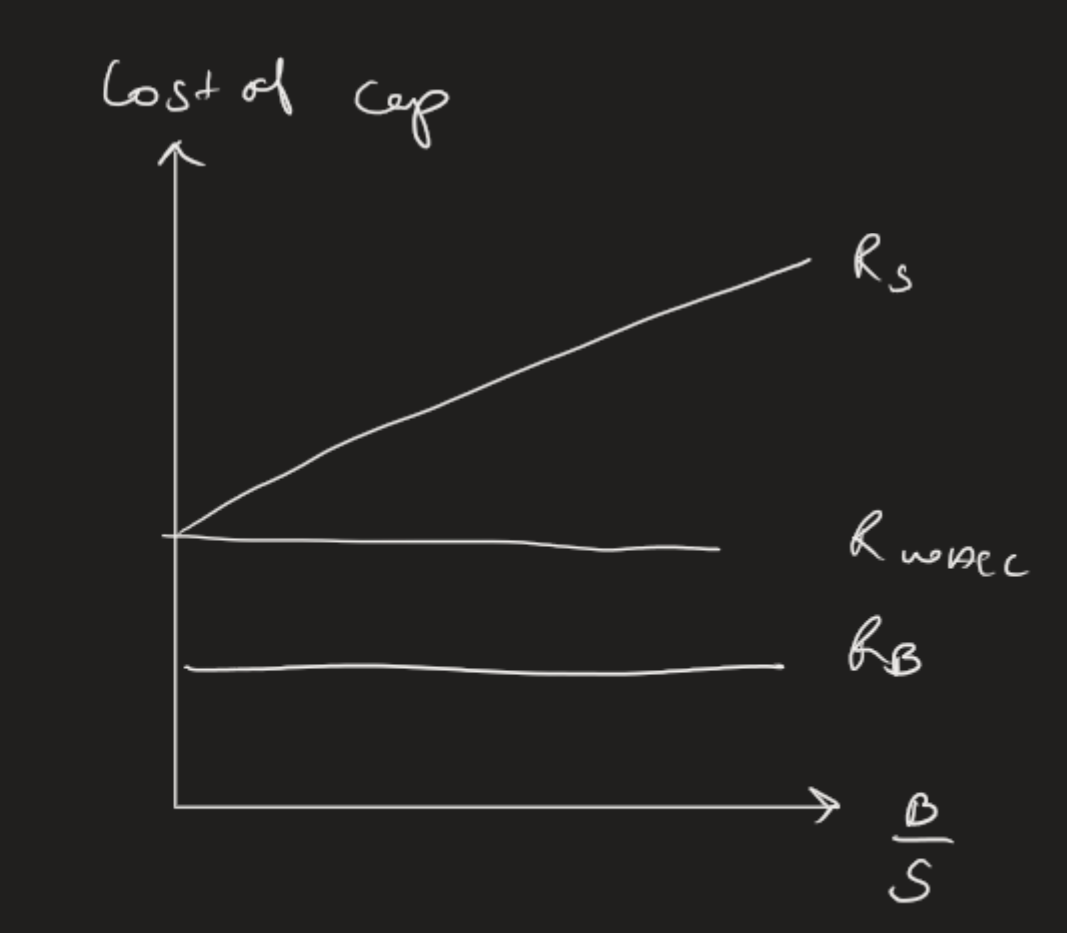 Cost of cap
R_S
R_WACC
R_B
B
S